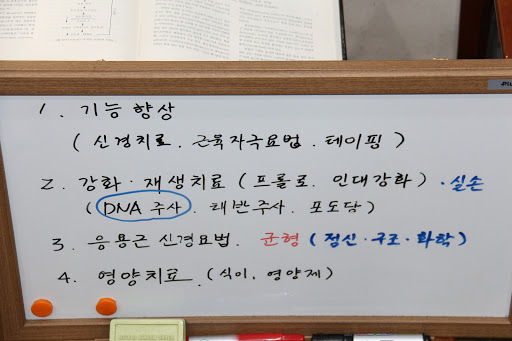 1. 기능 향상
(신경치료. 근육자극요법. 테이핑)
2. 강화·재생치료 (프롤로. 인대강화) ·실손
(DNA 주사. 태반주사. 포도당)
3. 응용근 신경요법. 균형 (정신·구조·화학)
4. 영양치료. (식이, 영양제)